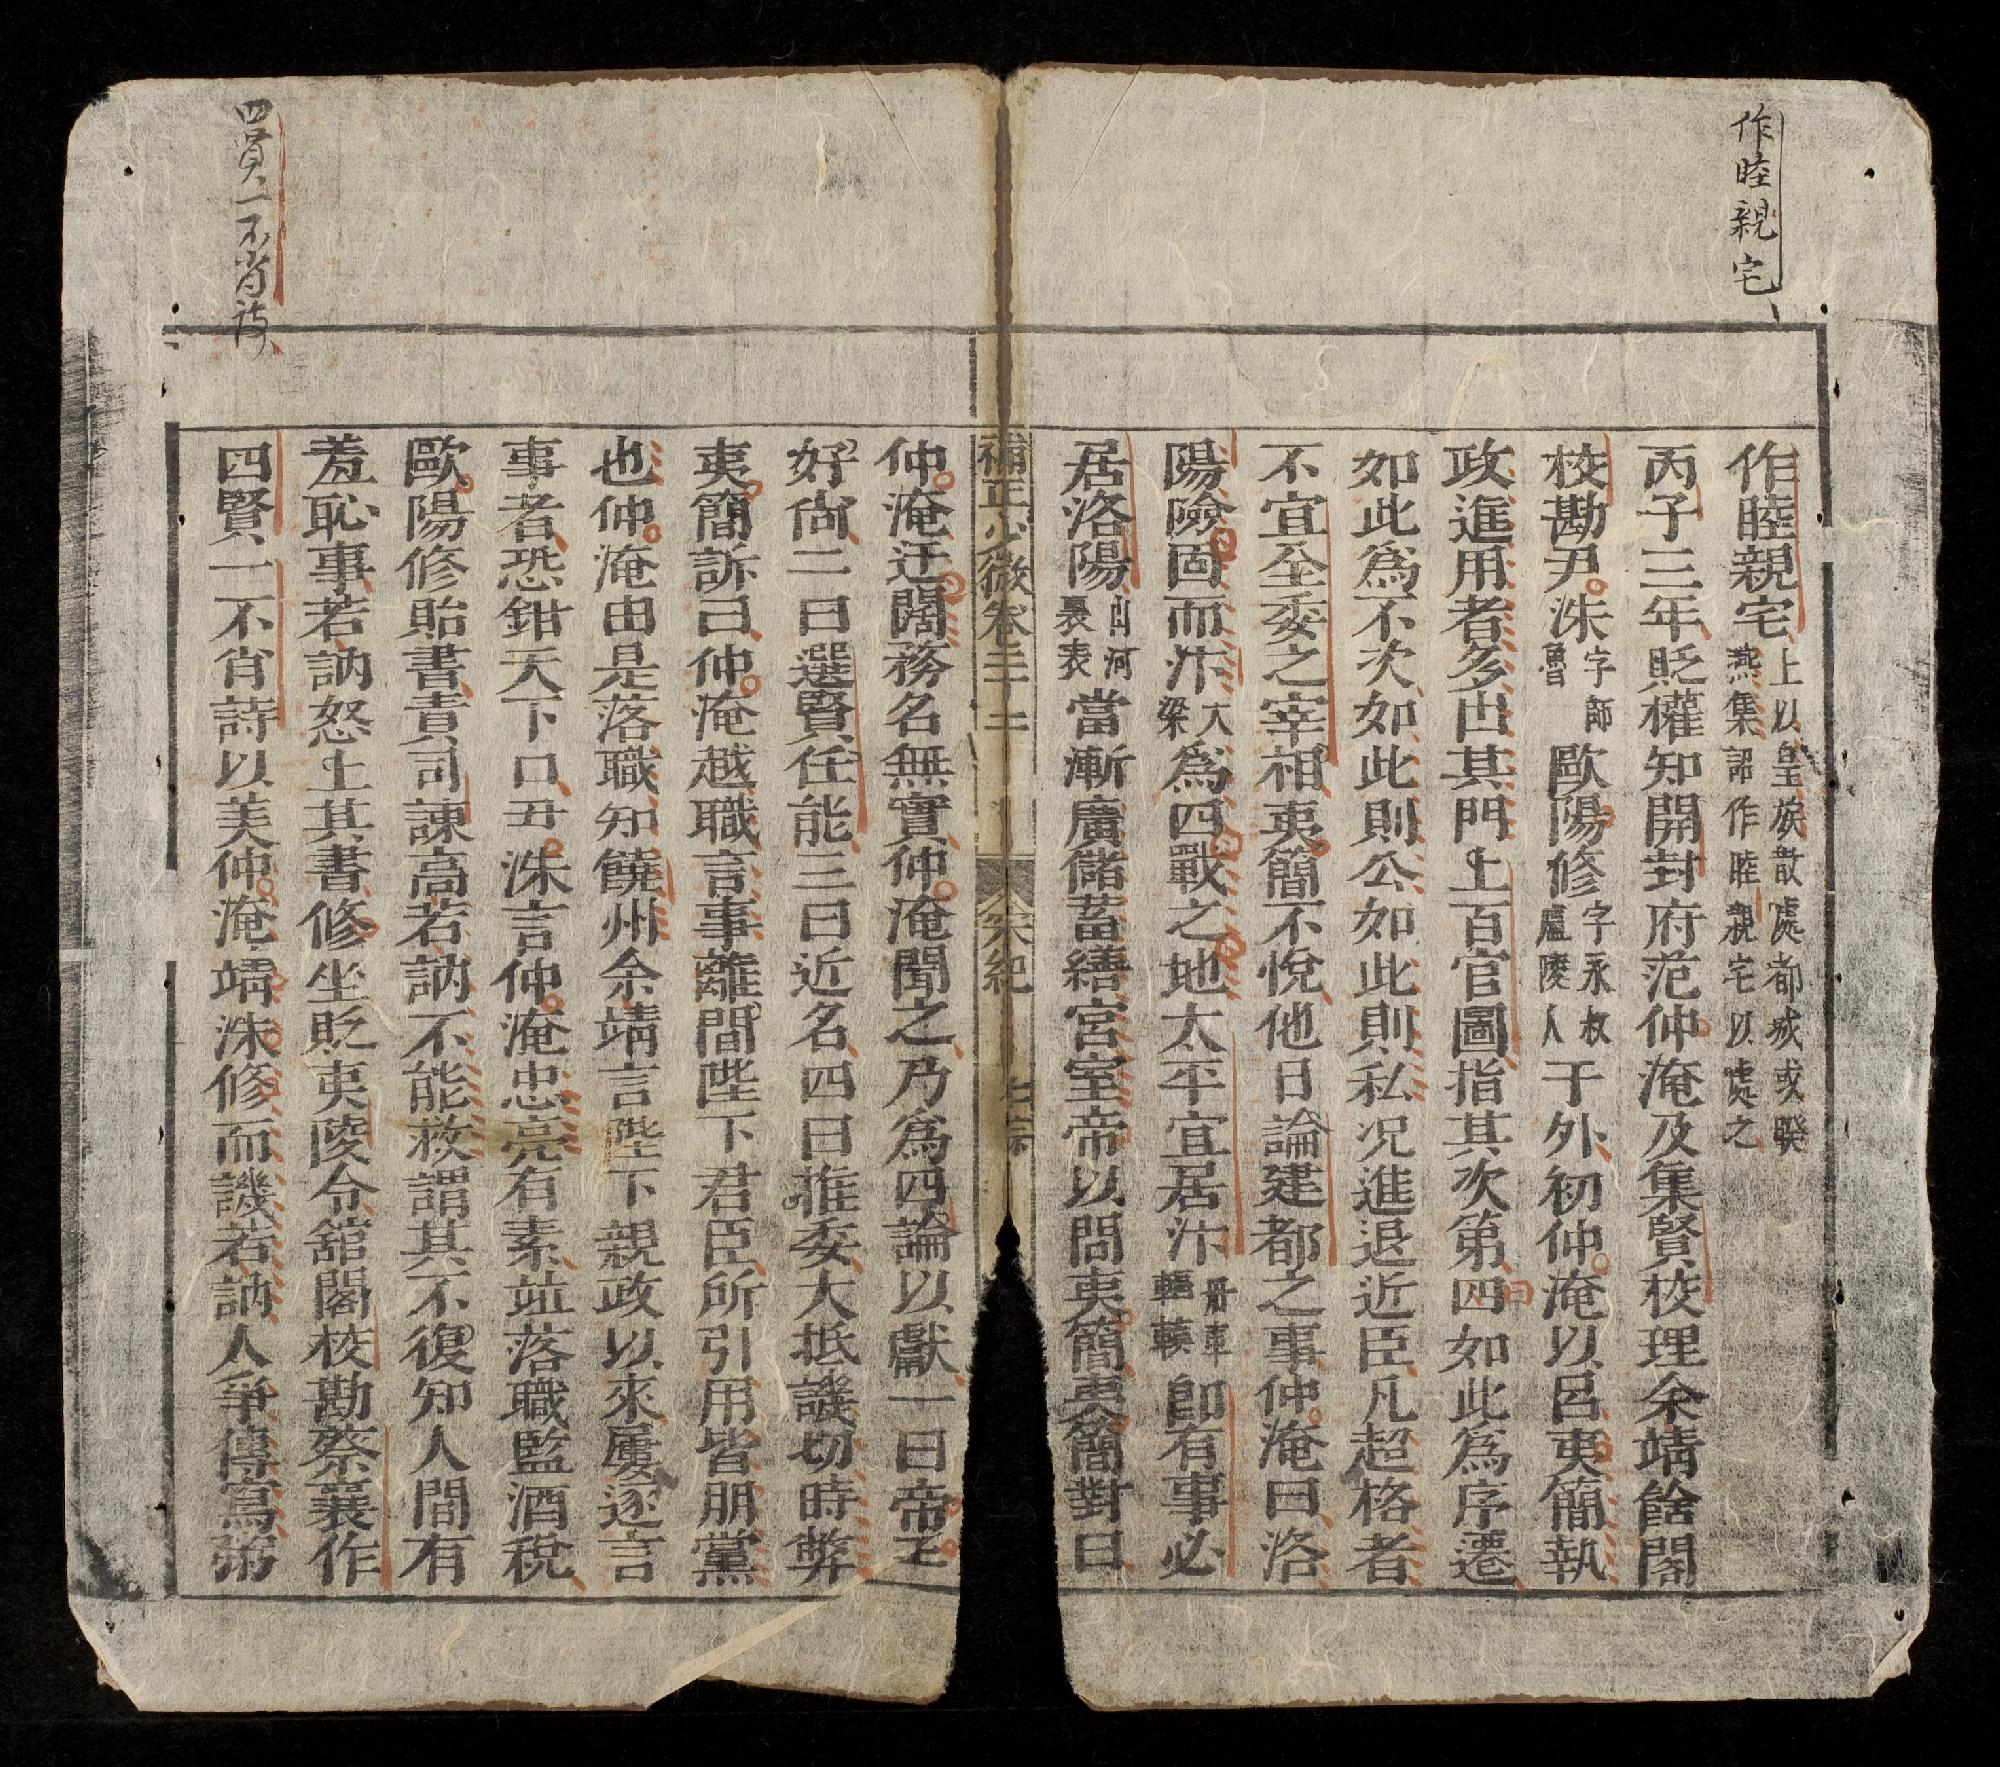 作睦親宅
作睦親宅上以皇族散處都城或睽燕集詔作睦親宅以處之
丙子三年貶權知開封府范仲淹及集賢校理余靖舘閣
校勘尹洙字師魯歐陽修字永叔廬陵人于外初仲淹以呂夷簡執
政進用者多出其門上百官圖指其次第曰如此為序遷
如此爲不次如此則公如此則私况進退近臣凡超格者
不宜全委之宰相夷簡不悅他日論建都之事仲淹曰洛
陽險固而汴大梁爲四戰之地太平宜居汴舟車輻輳卽有事必
居洛陽山河表裏當漸廣儲蓄繕宮室帝以問夷簡夷簡對曰
補正少微卷二十二 宋紀 仁宗
仲淹迂闊務名無實仲淹聞之乃爲四論以獻一曰帝王
好尙二曰選賢任能三曰近名四曰推委大抵譏切時弊
夷簡訴曰仲淹越職言事離間陛下君臣所引用皆朋黨
也仲淹由是落職知饒州余靖言陛下親政以來屢逐言
事者恐鉗天下口尹洙言仲淹忠亮有素並落職監酒稅
歐陽修貽書責司諫高若訥不能救謂其不復知人間有
羞恥事若訥怒上其書修坐貶夷陵令舘閣校勘蔡襄作
四賢一不肖詩以美仲淹靖洙修而譏若訥人爭傳寫粥
四賢一不肖詩